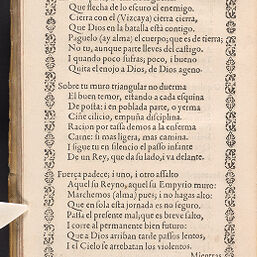 Que flecha de lo escuro el enemigo.
Cierra con el (Vizcaya) cierra, cierra,
Que Dios en la batalla està contigo.
Paguelo (ay alma) el cuerpo; que es de tierra;
No tu, aunque parte lleves del castigo.
I quando poco sufras; poco, i bueno
Quita el enojo a Dios, de Dios ageno.
Sobre tu muro triangular no duerma
El buen temor, estando a cada esquina
De posta: i en poblada parte, o yerma,
Ciñe cilicio, empuña disciplina.
Racion por tassa demos a la enferma
Carne: si mas ligera, mas camina.
I sigue tu en silencio el passo infante
De un Rey, que da su lado, i va delante.
Fuerça padece; i uno, i otro assalto
Aquel su Reyno, aquel su Empyrio muro:
Marchemos (alma) pues; i no hagas alto;
Que en sola esta jornada es no seguro.
Passa el presente mal, que es breve salto,
I corre al permanente bien futuro:
Que a Dios arriban tarde passos lentos,
I el Cielo se arrebatan los violentos.
Mientras